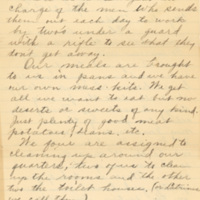 charge of the men & he sends
them out each day to work
by twos under a guard
with a rifle to see that they
dont get away.
Our meals are brought
to us in pans and we have
our own mess-kits. We get
all we want to eat but no
deserts or sweets of any kind.
Just plenty of good meat
potatoes, beans, etc.
We four are assigned to
cleaning up around our
quarters; two of us to clean
up the rooms and the other
two the toilet houses, (
we call them)